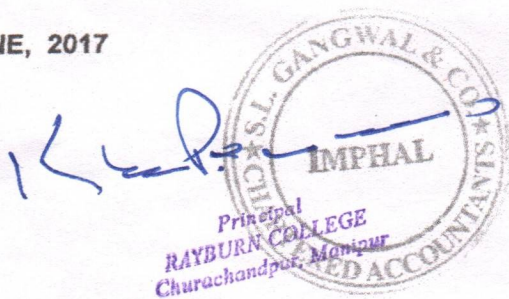 NE, 2017
★ S.L. GANGWAL & CO. ★
IMPHAL
CHARTERED ACCOUNTANTS
Principal
RAYBURN COLLEGE
Churachandpur, Manipur